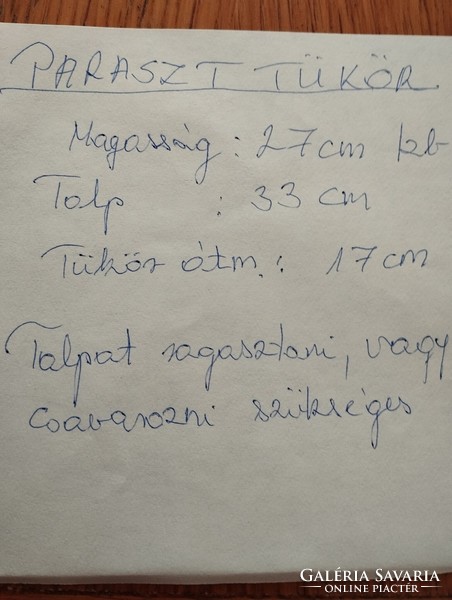 PARASZT TÜKÖR
Magasság : 27 cm kb
Talp : 33 cm
Tükör átm. : 17 cm
Talpat ragasztani, vagy
csavarozni szükséges
GALÉRIA SAVARIA
ONLINE PIACTÉR